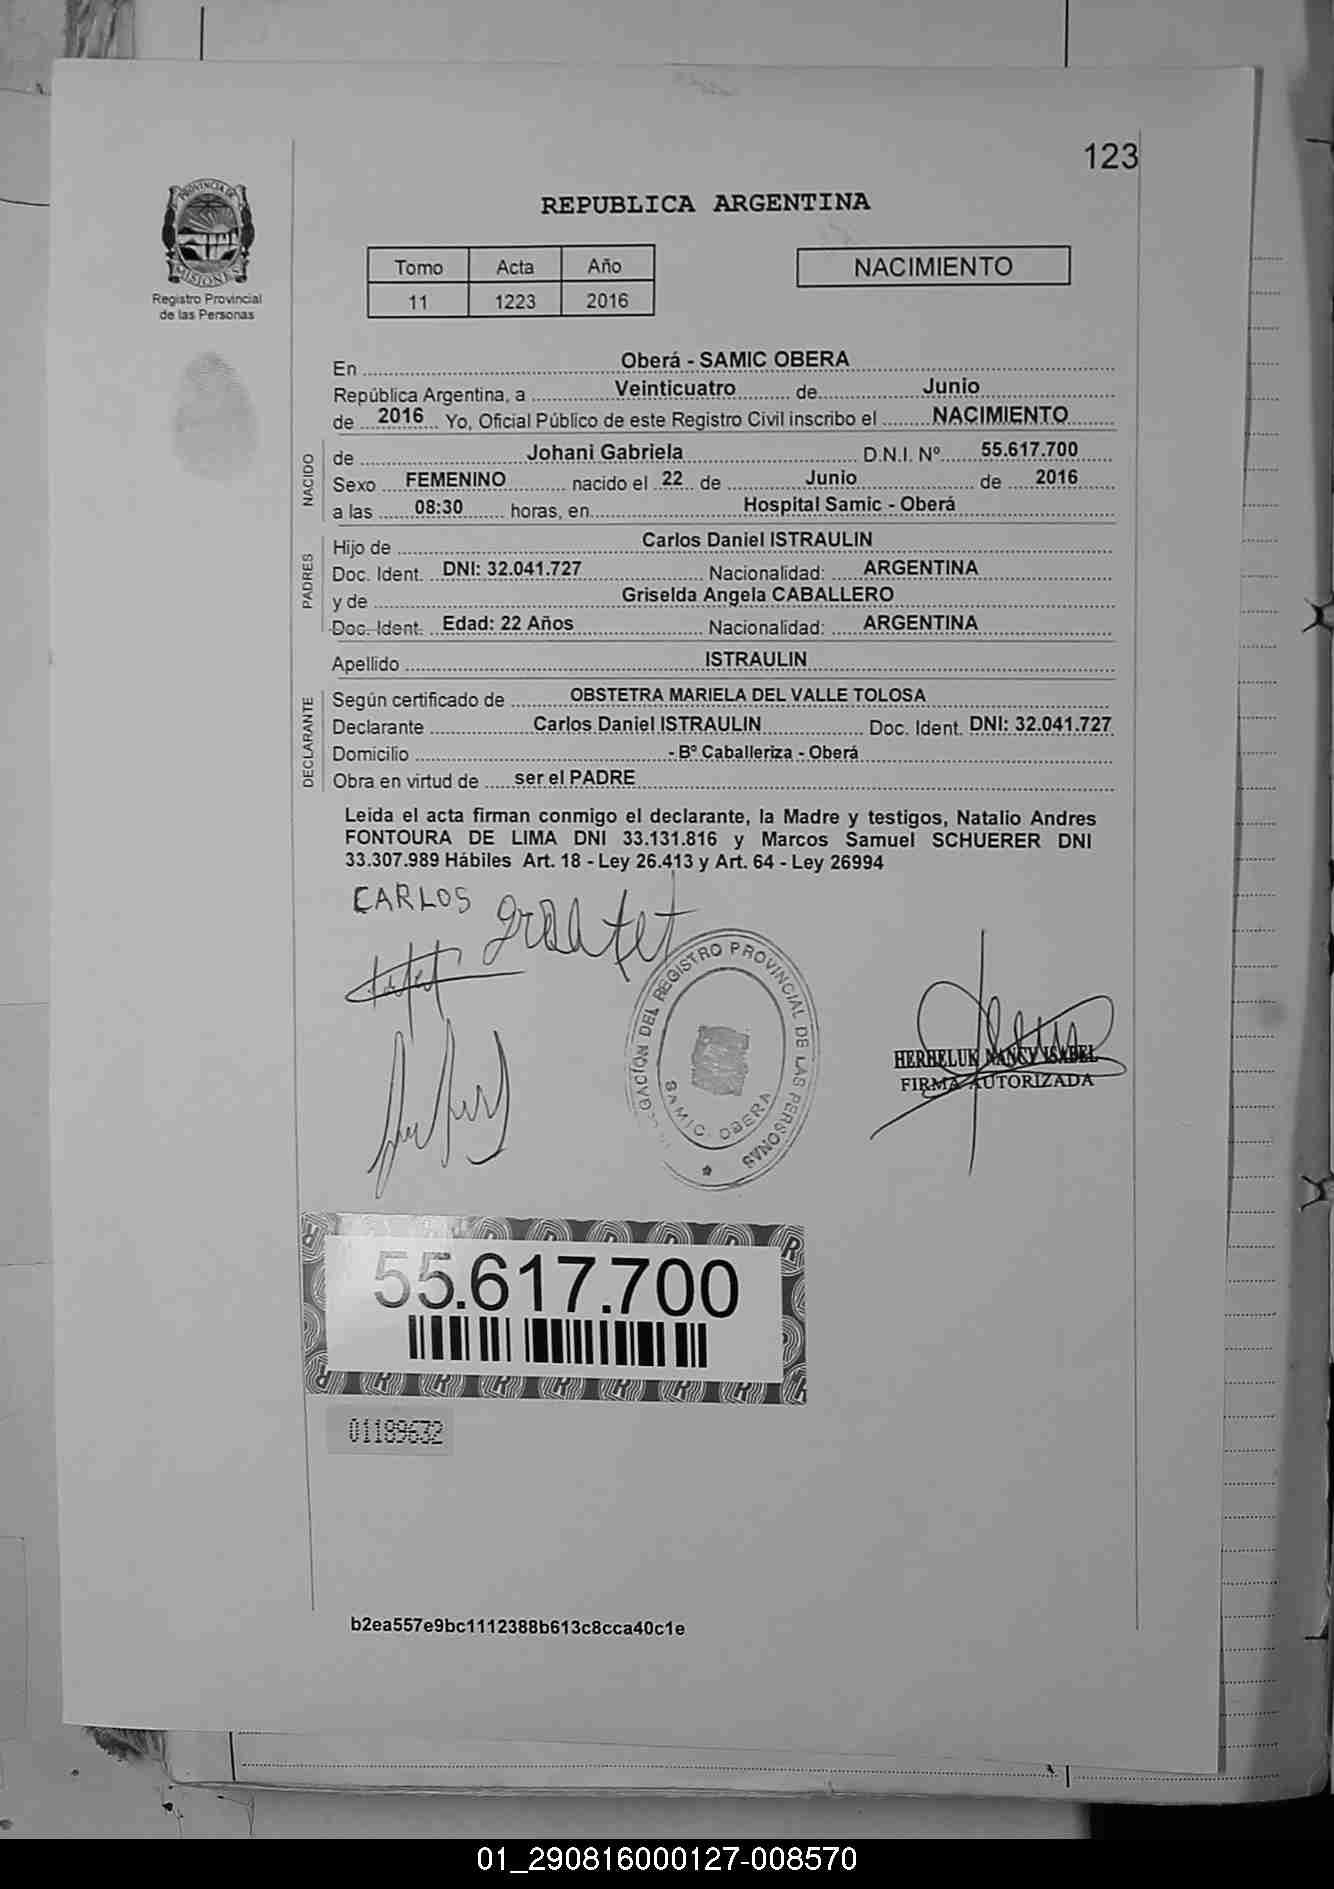 123
PROVINCIA DE
MISIONES
Registro Provincial
de las Personas
REPUBLICA ARGENTINA
Tomo Acta Año
11 1223 2016
NACIMIENTO
En Oberá - SAMIC OBERA
República Argentina, a Veinticuatro de Junio
de 2016 Yo, Oficial Público de este Registro Civil inscribo el NACIMIENTO
NACIDO
de Johani Gabriela D.N.I. Nº 55.617.700
Sexo FEMENINO nacido el 22 de Junio de 2016
a las 08:30 horas, en Hospital Samic - Oberá
PADRES
Hijo de Carlos Daniel ISTRAULIN
Doc. Ident. DNI: 32.041.727 Nacionalidad: ARGENTINA
y de Griselda Angela CABALLERO
Doc. Ident. Edad: 22 Años Nacionalidad: ARGENTINA
Apellido ISTRAULIN
DECLARANTE
Según certificado de OBSTETRA MARIELA DEL VALLE TOLOSA
Declarante Carlos Daniel ISTRAULIN Doc. Ident. DNI: 32.041.727
Domicilio - Bº Caballeriza - Oberá
Obra en virtud de ser el PADRE
Leida el acta firman conmigo el declarante, la Madre y testigos, Natalio Andres
FONTOURA DE LIMA DNI 33.131.816 y Marcos Samuel SCHUERER DNI
33.307.989 Hábiles Art. 18 - Ley 26.413 y Art. 64 - Ley 26994
CARLOS
DEL REGISTRO PROVINCIAL DE LAS PERSONAS
SAMIC - OBERA
HERHELUK NANCY ISABEL
FIRMA AUTORIZADA
55.617.700
01189632
b2ea557e9bc1112388b613c8cca40c1e
01_290816000127-008570